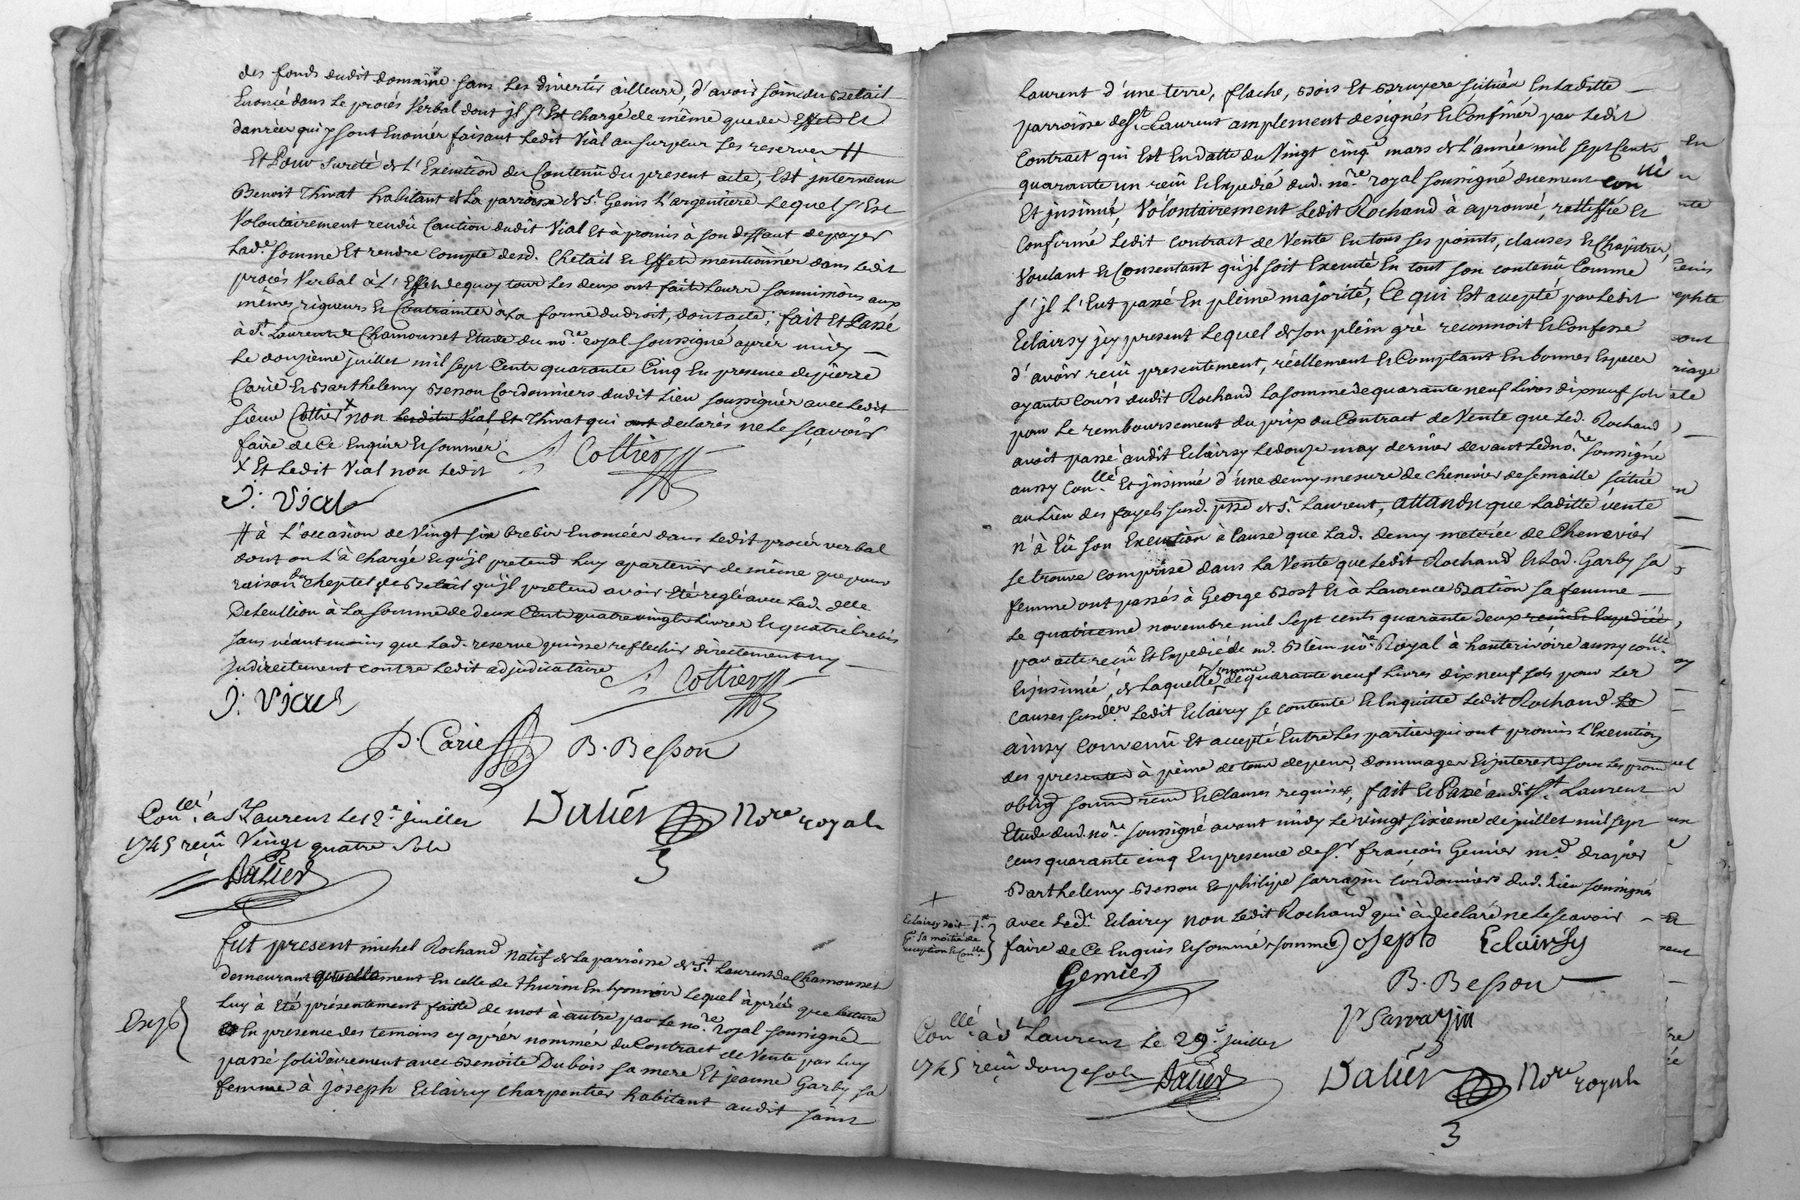 des fonds dudit domaine sans les divertir ailleurs, d'avoir soin du Betail
Enoncé dans le procés verbal dont jl s'est chargé de même que des Effets et
danrées qui y sont Enoncés faisant ledit Vial au surplus les reserves #
Et Pour sureté de l'Execution du Contenû du present acte, Est jntervenu
Benoit Thivat habitant de la parroisse de St. Genis l'argentiere lequel s'est
Volontairement rendû Caution dudit Vial Et à promis à son deffaut de payer
lad.e somme Et rendre compte desd. Chetail et Effets mentionnés dans ledit
procés Verbal à l'Effet dequoy tous les deux ont faits leurs soumissions aux
mêmes rigueurs et Contraintes à la forme du droit, dont acte, fait Et Passé
à St. Laurent de Chamousset Etude du no.re royal soussigné aprés midy —
le douzième juillet mil sept Cents quarante Cinq En presence de pierre
Carie et Barthelemy Besson Cordonniers dudit lieu soussignés avec ledit
sieur Collier X non lesdits Vial Et Thivat qui ont declarés ne le sçavoir
faire de ce Enquis et sommés
X Et ledit Vial non ledit
J: Vial
Collier
# à l'occasion de vingt six brebis Enoncées dans ledit procés verbal
dont on l'à chargé et qu'jl pretend luy apartenir de même que pour
raison du cheptel de Betail qu'jl pretend avoir été reglé avec lad. delle
à la somme de deux Cents quatre vingts livres et quatre brebis
sans néantmoins que lad. reserve puisse reflechir directement ny —
jndirectement contre ledit adjudicataire
Collier
J: Vial
P. Carie B. Besson
Con.llé à St Laurent le 12.e juillet
1745 reçû Vingt quatre sols
Dalier
Dalier No.re royal
fut present michel Rochand natif de la parroisse de St. Laurent de Chamousset
demeurant actuellement En celle de Thurin En lyonnois lequel àprès que lecture
luy à Eté présentement faite de mot à autre par le no.re royal soussigné
En presence des temoins cy aprés nommés du Contract de vente par luy
passé solidairement avec Benoite Dubois sa mere Et jeanne Garby sa
femme à joseph Eclairsy charpentier habitant audit saint
Laurent d'une terre, flache, Bois Et Bruyere scituée En ladite —
parroisse de St. Laurent amplement designés et Confinés par ledit
Contract qui Est En datte du Vingt cinq mars de l'année mil sept Cents
quarante un reçû et Expedié dud. no.re royal soussigné duement con.llé
Et jnsinué, Volontairement ledit Rochand à aprouvé, rattiffié Et
Confirmé ledit contract de Vente En tous ses points, clauses et Chapitres,
voulant et Consentant qu'jl soit Executé En tout son contenû Comme
s'jl l'Eut passé En pleine majorité, Ce qui Est accepté par ledit
Eclairsy jcy present lequel de son plein gré reconnoit et Confesse
d'avoir reçû presentement, réellement et Comptant En bonnes Especes
ayants cours dudit Rochand la somme de quarante neuf livres dix neuf sols
pour le remboursement du prix du Contract de Vente que led. Rochand
avoit passé audit Eclairsy le douze may dernier devant led no.re soussigné
aussy Con.llé Et jnsinué d'une demy mesure de chenevier de semaille scitué
au lieu des fayels susd. psse de St. Laurent, attandu que ladite vente
n'à Eû son Execution à Cause que lad. demy meterée de Chenevier
se trouve comprise dans la Vente que ledit Rochand et lad. Garby sa
femme ont passés à George Bost et à Laurence Bation sa femme —
le quatrieme novembre mil sept cents quarante deux
par acte reçû Et Expedié de me. Blein no.re Royal à hauterivoire aussy con.llé
Et jnsinué, de laquelle somme de quarante neuf livres dix neuf sols pour les
causes susd.es ledit Eclairsy se contente et Enquitte ledit Rochand
ainsy convenû Et accepté Entre les parties qui ont promis l'Execution
des presentes à peine de tous depens, dommages et jnterests sous les prom.
oblig. soum. renon. et Clauses requises, fait et Passé audit St. Laurent
Etude dud. no.re soussigné avant midy le vingt sixieme de juillet mil sept
cens quarante cinq En presence de Sr. françois Genier m.d drapier
Barthelemy Besson et philipe sarrazin cordonniers dud. lieu soussignés
avec led.t Eclaircy non ledit Rochand qui à declaré ne le scavoir
faire de Ce Enquis et sommé
joseph Eclairsy
Genier
B. Besson
P Sarrazin
Con.llé à St Laurent le 29.e juillet
1745 reçû douze sols
Dalier
Dalier No.re royal